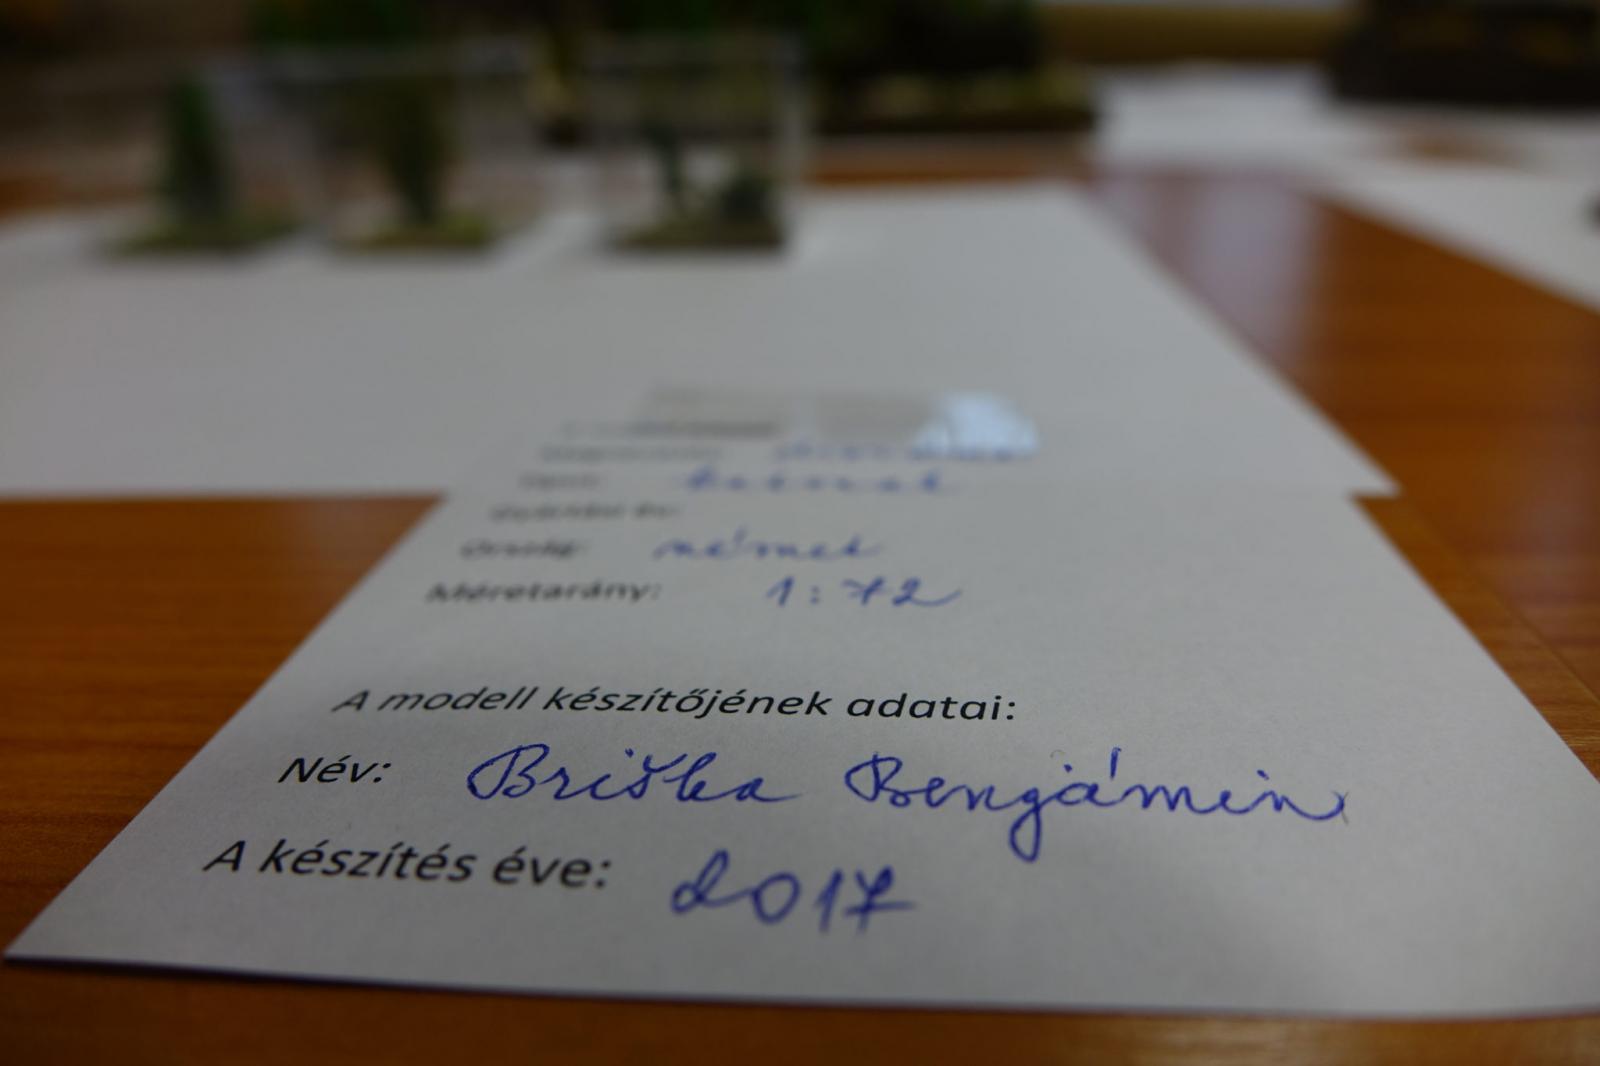 Típus: katonák
Gyártási év:
Ország: német
Méretarány: 1:72
A modell készítőjének adatai:
Név: Briška Benjámin
A készítés éve: 2017